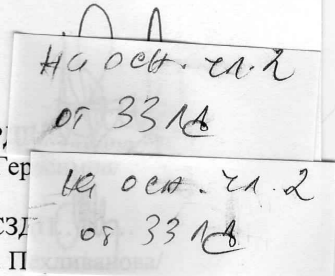 на осн. чл. 2
от ЗЗЛД
Гер
на осн. чл. 2
от ЗЗЛД
СЗД
П